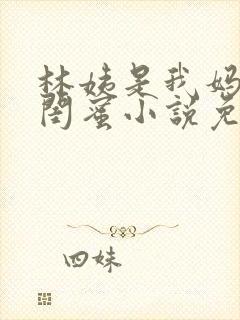 林姨是我妈
闺蜜小说免
四妹